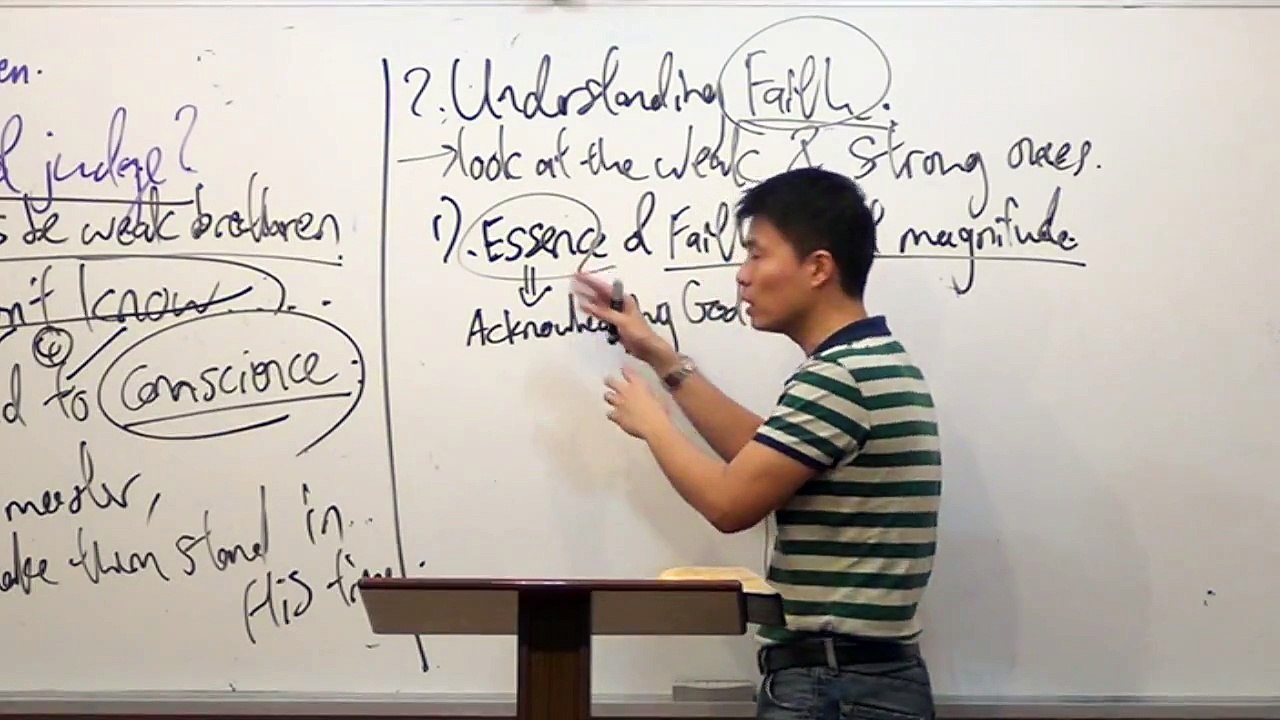 en.
judge?
weak brethren
n't know...
④
d to Conscience.
master,
make them stand in...
His time.
2. Understanding Faith.
→ look at the weak & strong ones.
1). Essence of Faith magnitude
⇓
Acknowledging God